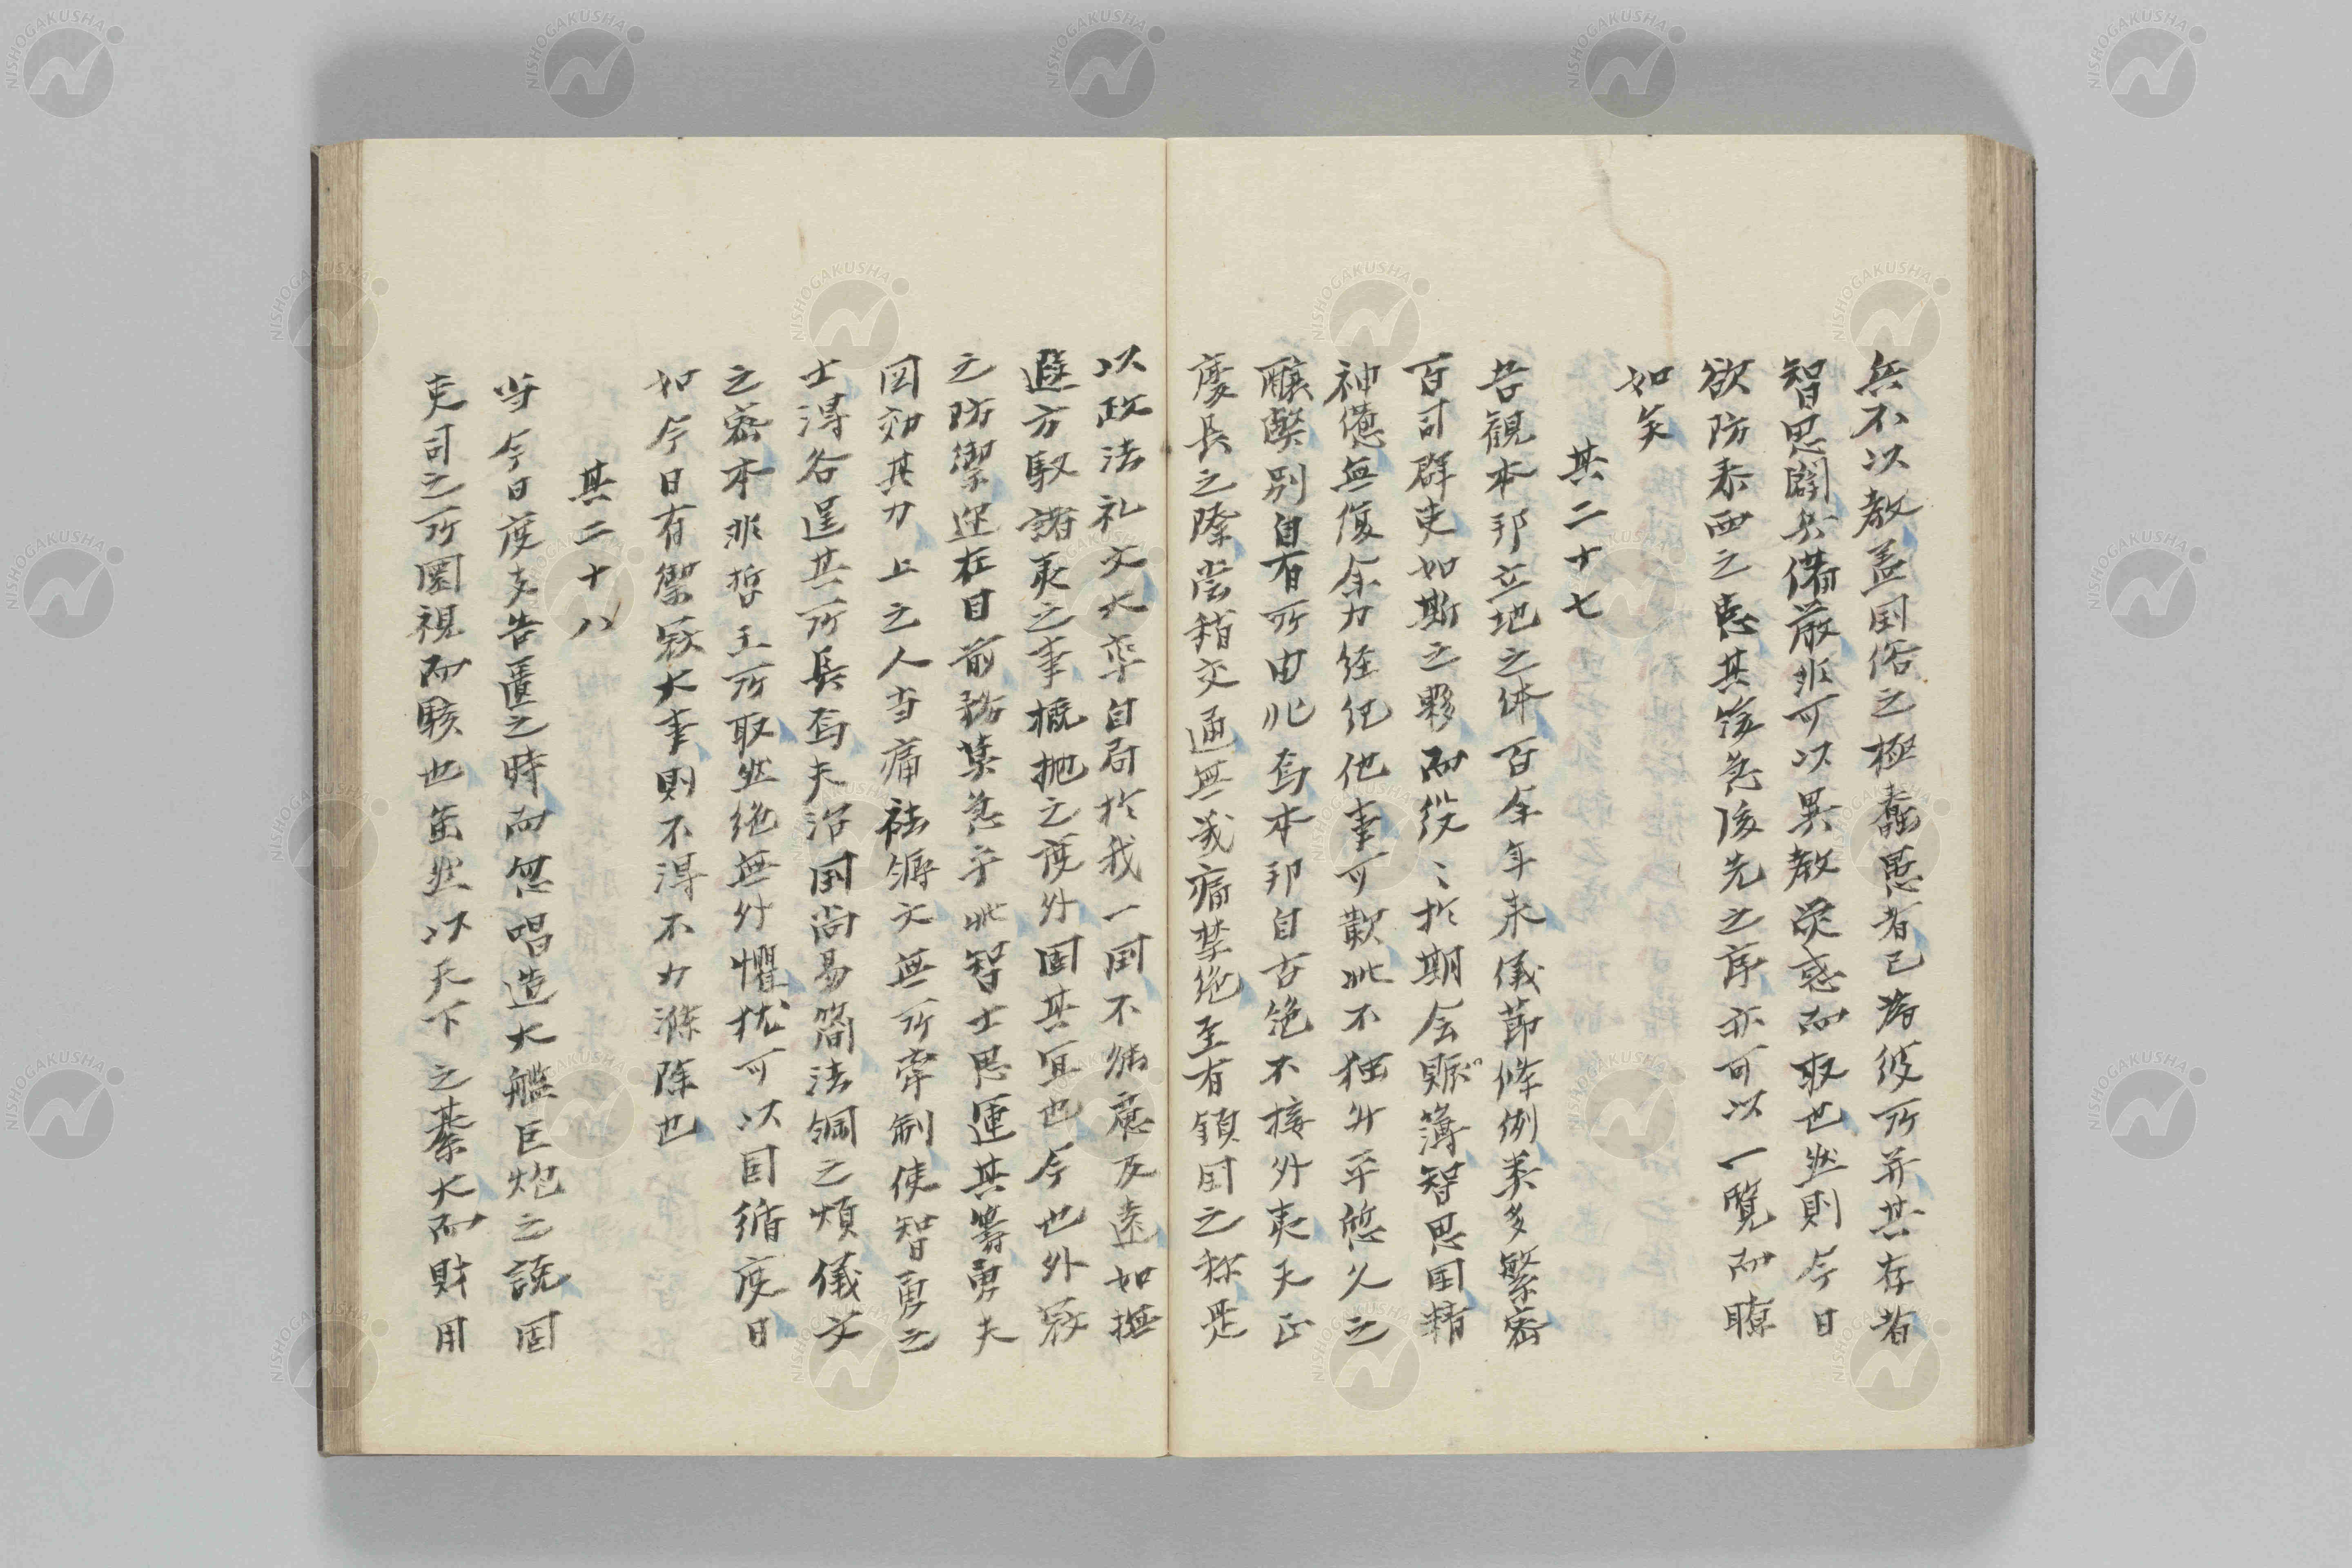 兵不以教蓋国俗之極蠢愚者已為彼所并其存者
智思闢兵備厳非可以異教熒惑而取也然則今日
欲防泰西之患其緩急後先之序亦可以一覧而瞭
如矣
其二十七
吾観本邦立地之体百余年来儀節條例素多繁密
百司群吏如斯之夥而役〻於期会賬簿智思困精
神憊無復余力経紀他事可歎此不独升平悠久之
醸弊別自有所由也焉本邦自古絶不接外夷天正
慶長之際嘗稍交通無幾痛禁絶至有鎖国之称是
以政法礼文大率自局於我一国不備慮及遠如撫
遐方馭諸夷之事概抛之度外固其宜也今也外寇
之防禦迫在目前務莫急乎此智士思運其籌勇夫
図効其力上之人当痛祛縟文無所牽制使智勇之
士得各逞其所長焉夫治国尚易簡法綱之煩儀文
之密本非哲王所取然絶無外懼猶可以因循度日
如今日有禦寇大事則不得不力滌除也
其二十八
当今日度支告匱之時而忽唱造大艦巨炮之説固
吏司之所圜視而駭也雖然以天下之綦大而財用
NISHOGAKUSHA